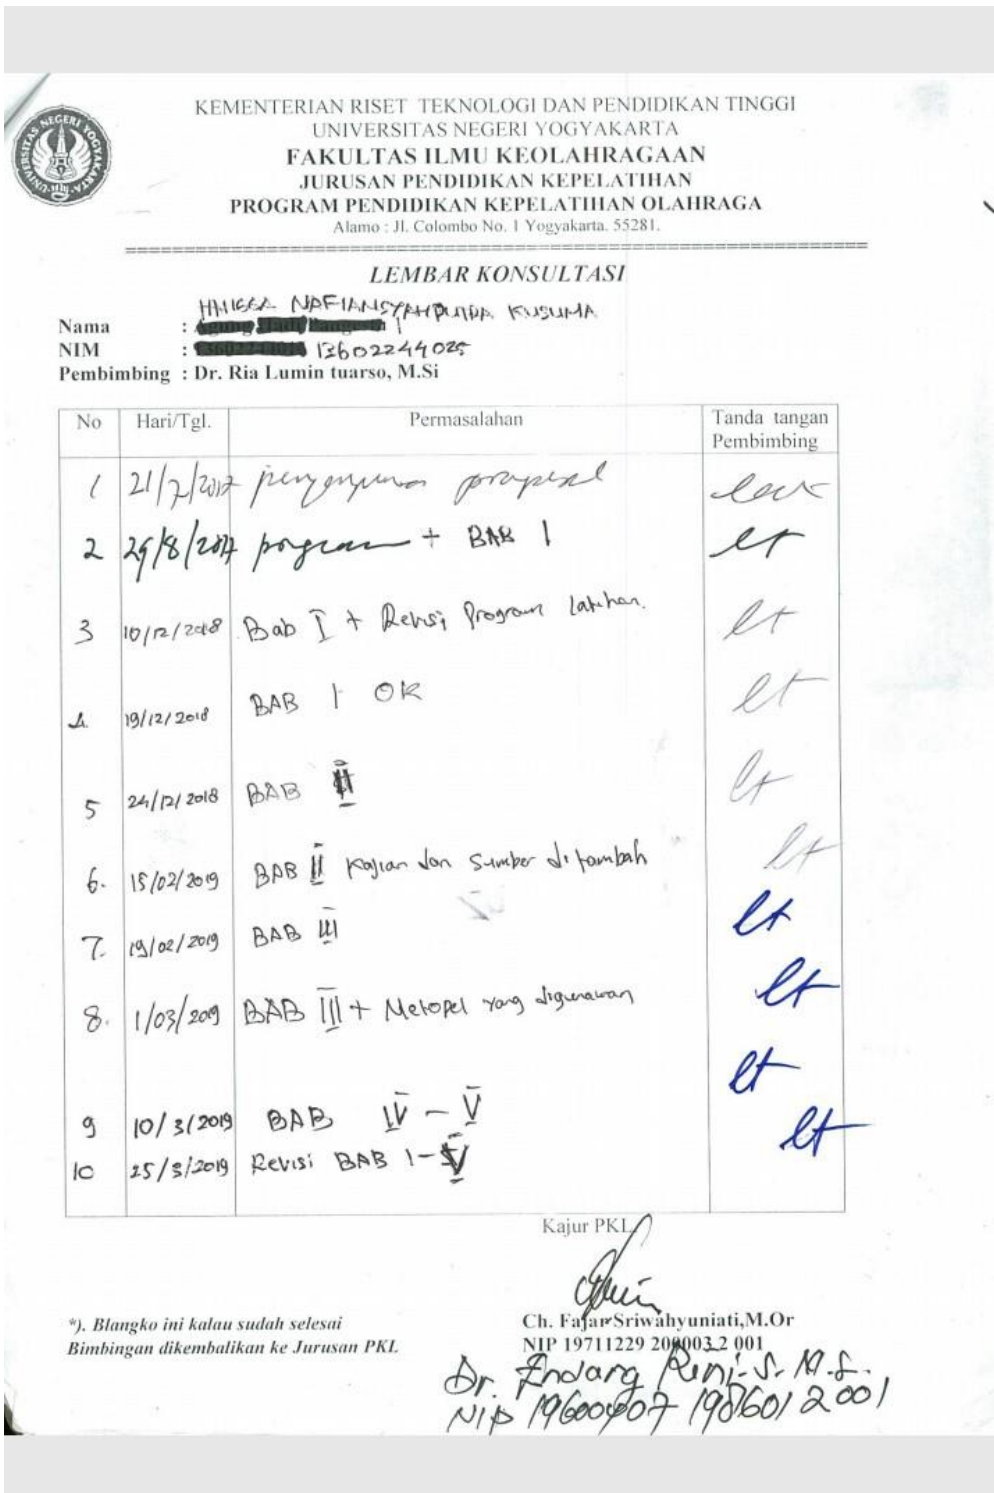 UNIVERSITAS NEGERI YOGYAKARTA
KEMENTERIAN RISET TEKNOLOGI DAN PENDIDIKAN TINGGI
UNIVERSITAS NEGERI YOGYAKARTA
FAKULTAS ILMU KEOLAHRAGAAN
JURUSAN PENDIDIKAN KEPELATIHAN
PROGRAM PENDIDIKAN KEPELATIHAN OLAHRAGA
Alamo : Jl. Colombo No. 1 Yogyakarta. 55281.
LEMBAR KONSULTASI
KUSUMA
Nama :
NIM : 13602244025
Pembimbing : Dr. Ria Lumin tuarso, M.Si
No Hari/Tgl. Permasalahan Tanda tangan
Pembimbing
1 21/7/2017 proposal
2 29/8/2017 program + BAB 1 lt
3 10/12/2018 Bab I + Revisi Program Latihan. lt
4. 19/12/2018 BAB 1 OK lt
5 24/12/2018 BAB II lt
6. 15/02/2019 BAB II Kajian dan Sumber ditambah lt
7. 19/02/2019 BAB III lt
8. 1/03/2019 BAB III + Metopel yang digunakan lt
9 10/3/2019 BAB IV - V lt
10 25/3/2019 Revisi BAB 1 - V lt
Kajur PKL
*). Blangko ini kalau sudah selesai
Bimbingan dikembalikan ke Jurusan PKL
Ch. Fajar Sriwahyuniati,M.Or
NIP 19711229 200003 2 001
Dr. Endang Rini S. M.S.
NIP 19600407 198601 2 001